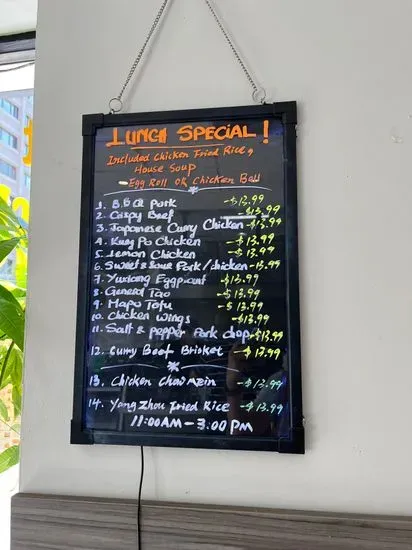 LUNCH SPECIAL!
Included Chicken Fried Rice,
House Soup
Egg Roll OR Chicken Ball
1. B.B.Q Pork -$13.99
2. Crispy Beef -$13.99
3. Japanese Curry Chicken -$13.99
4. Kung Po Chicken -$13.99
5. Lemon Chicken -$13.99
6. Sweet & Sour Pork/chicken -13.99
7. Yuxiang Eggplant -$13.99
8. General Tao -$13.99
9. Mapo Tofu -$13.99
10. Chicken Wings -$13.99
11. Salt & pepper Pork chop -$13.99
12. Curry Beef Brisket -$13.99
13. Chicken Chow Mein -$13.99
14. Yang Zhou Fried Rice -$13.99
11:00AM - 3:00 PM